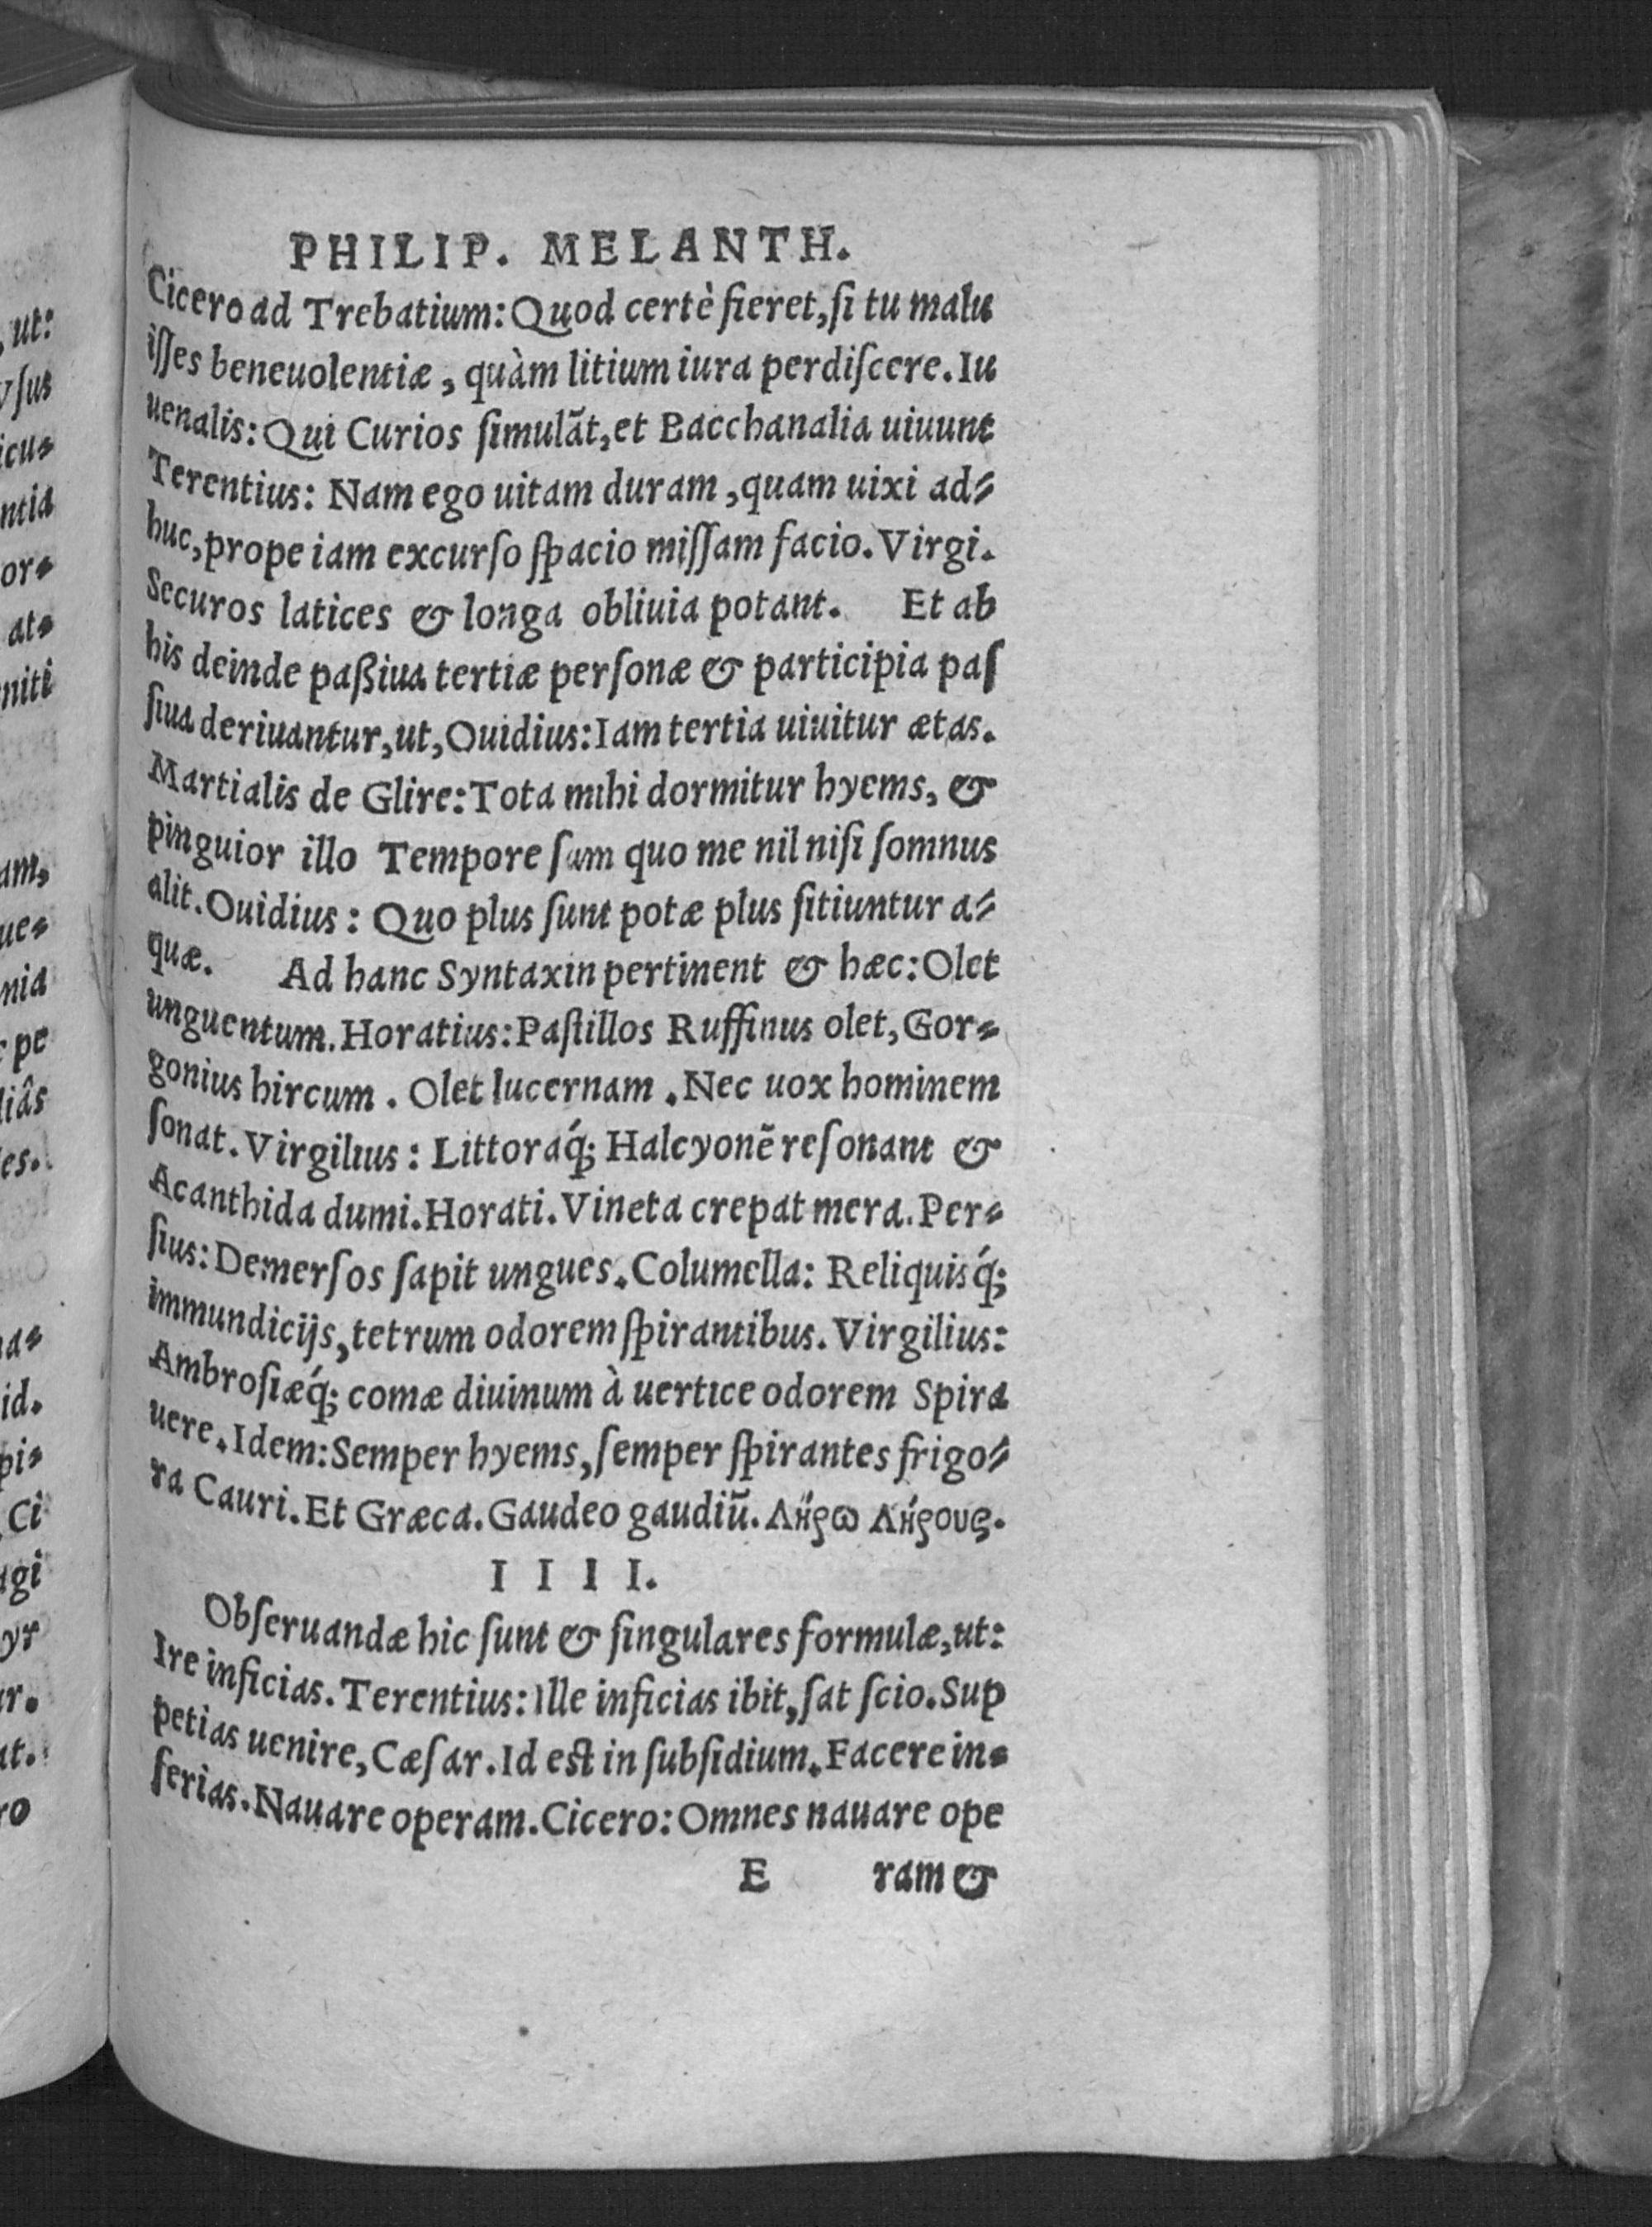 PHILIP. MELANTH.
Cicero ad Trebatium: Quod certè fieret, ſi tu malu
iſſes beneuolentiæ, quàm litium iura perdiſcere. Iu
uenalis: Qui Curios ſimulāt, et Bacchanalia uiuunt
Terentius: Nam ego uitam duram, quam uixi ad⸗
huc, prope iam excurſo ſpacio miſſam facio. Virgi.
Securos latices & longa obliuia potant. Et ab
his deinde paßiua tertiæ perſonæ & participia paſ
ſiua deriuantur, ut, Ouidius: Iam tertia uiuitur ætas.
Martialis de Glire: Tota mihi dormitur hyems, &
pinguior illo Tempore ſum quo me nil niſi ſomnus
alit. Ouidius: Quo plus ſunt potæ plus ſitiuntur a⸗
quæ. Ad hanc Syntaxin pertinent & hæc: Olet
unguentum. Horatius: Paſtillos Ruffinus olet, Gor⸗
gonius hircum. Olet lucernam. Nec uox hominem
ſonat. Virgilius: Littoraq́; Halcyonē reſonant &
Acanthida dumi. Horati. Vineta crepat mera. Per⸗
ſius: Demerſos ſapit ungues. Columella: Reliquisq́;
immundicijs, tetrum odorem ſpirantibus. Virgilius:
Ambroſiæq́; comæ diuinum à uertice odorem Spira
uere. Idem: Semper hyems, ſemper ſpirantes frigo⸗
ra Cauri. Et Græca. Gaudeo gaudiū. Λήρω Λήρους.
I I I I.
Obſeruandæ hic ſunt & ſingulares formulæ, ut:
Ire inficias. Terentius: Ille inficias ibit, ſat ſcio. Sup
petias uenire, Cæſar. Id eſt in ſubſidium. Facere in⸗
ferias. Nauare operam. Cicero: Omnes nauare ope
E ram &